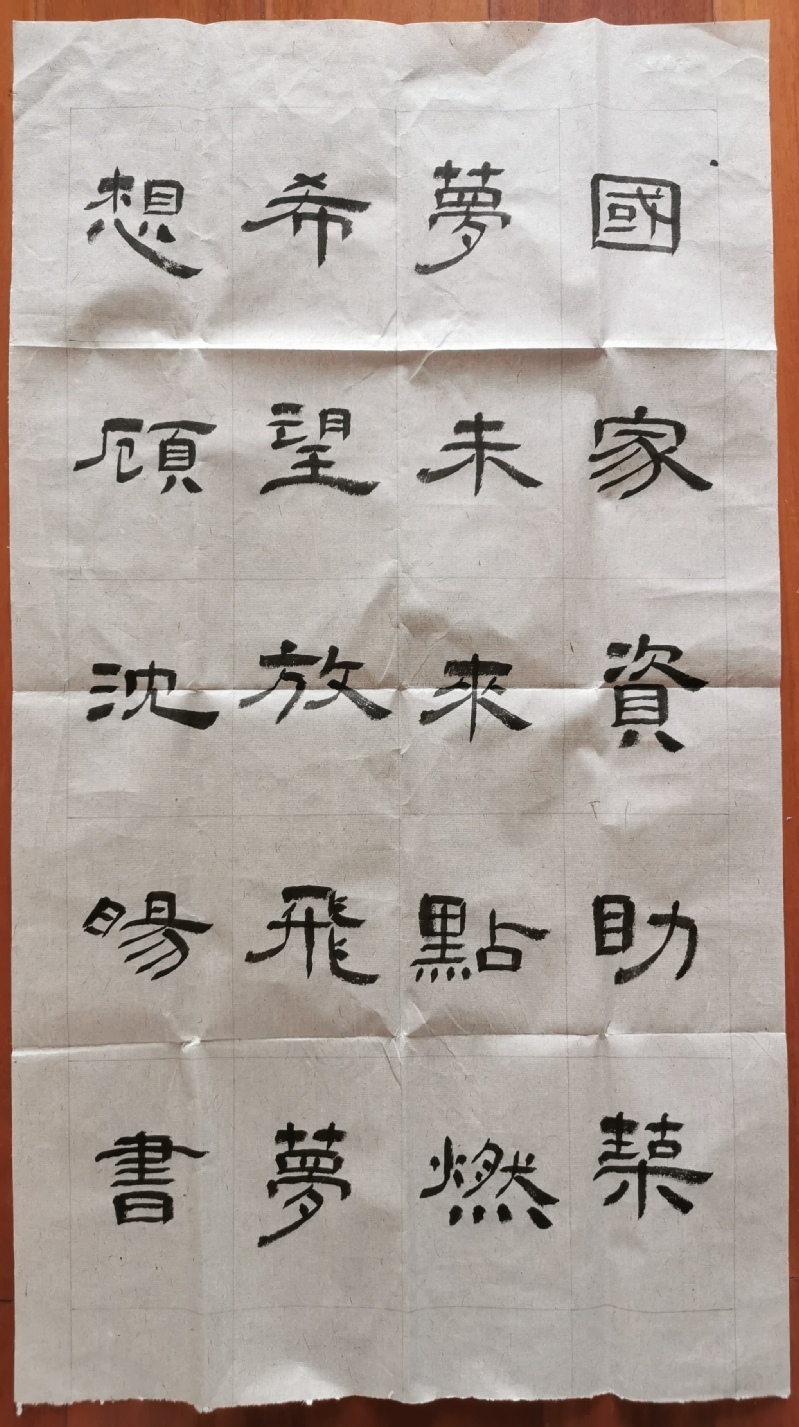 國家資助築
夢未來點燃
希望放飛夢
想顾沈暘書